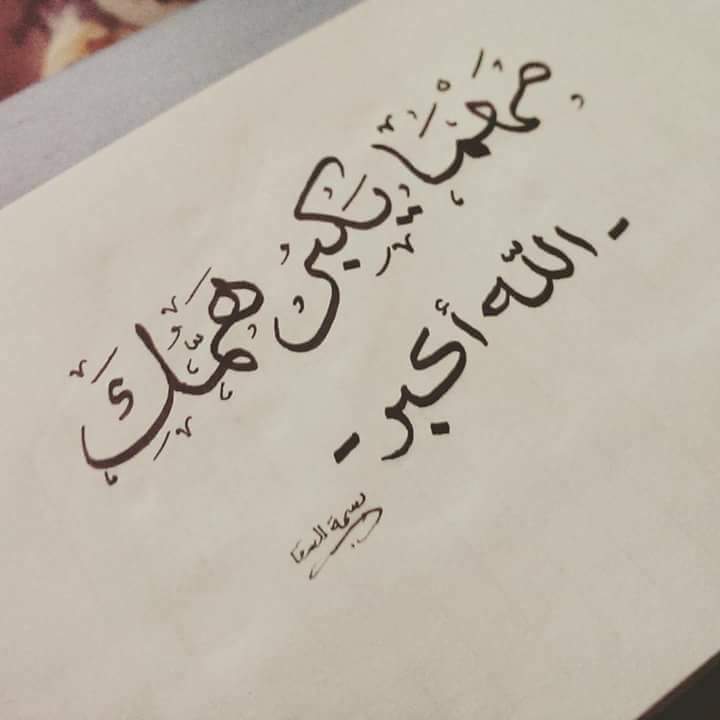 مهما يكبر همك
- الله أكبر -
بسمة السقا